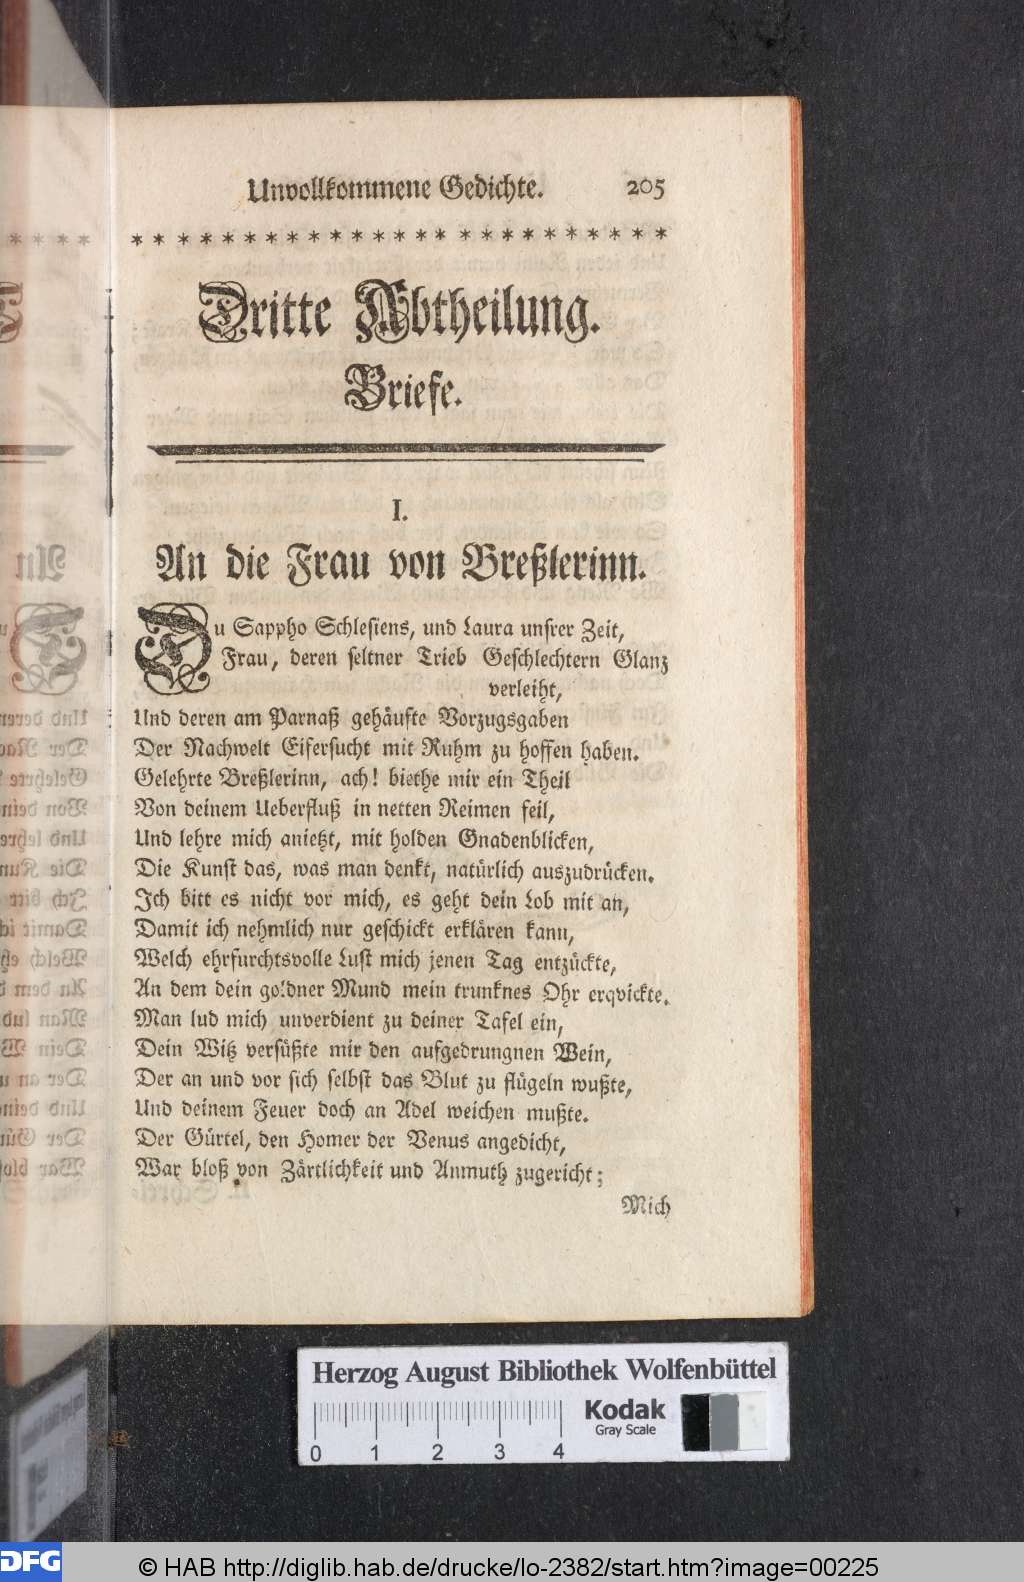 Unvollkommene Gedichte. 205
* * * * * * * * * * * * * * * * * * * * * * * * *
Dritte Abtheilung.
Briefe.
I.
An die Frau von Breßlerinn.
Du Sappho Schlesiens, und Laura unsrer Zeit,
Frau, deren seltner Trieb Geschlechtern Glanz
verleiht,
Und deren am Parnaß gehäufte Vorzugsgaben
Der Nachwelt Eifersucht mit Ruhm zu hoffen haben.
Gelehrte Breßlerinn, ach! biethe mir ein Theil
Von deinem Ueberfluß in netten Reimen feil,
Und lehre mich anietzt, mit holden Gnadenblicken,
Die Kunst das, was man denkt, natürlich auszudrücken.
Ich bitt es nicht vor mich, es geht dein Lob mit an,
Damit ich nehmlich nur geschickt erklären kann,
Welch ehrfurchtsvolle Lust mich jenen Tag entzückte,
An dem dein goldner Mund mein trunknes Ohr erqvickte.
Man lud mich unverdient zu deiner Tafel ein,
Dein Witz versüßte mir den aufgedrungnen Wein,
Der an und vor sich selbst das Blut zu flügeln wußte,
Und deinem Feuer doch an Adel weichen mußte.
Der Gürtel, den Homer der Venus angedicht,
War bloß von Zärtlichkeit und Anmuth zugericht;
Mich
Herzog August Bibliothek Wolfenbüttel
Kodak
Gray Scale
0 1 2 3 4
DFG © HAB http://diglib.hab.de/drucke/lo-2382/start.htm?image=00225